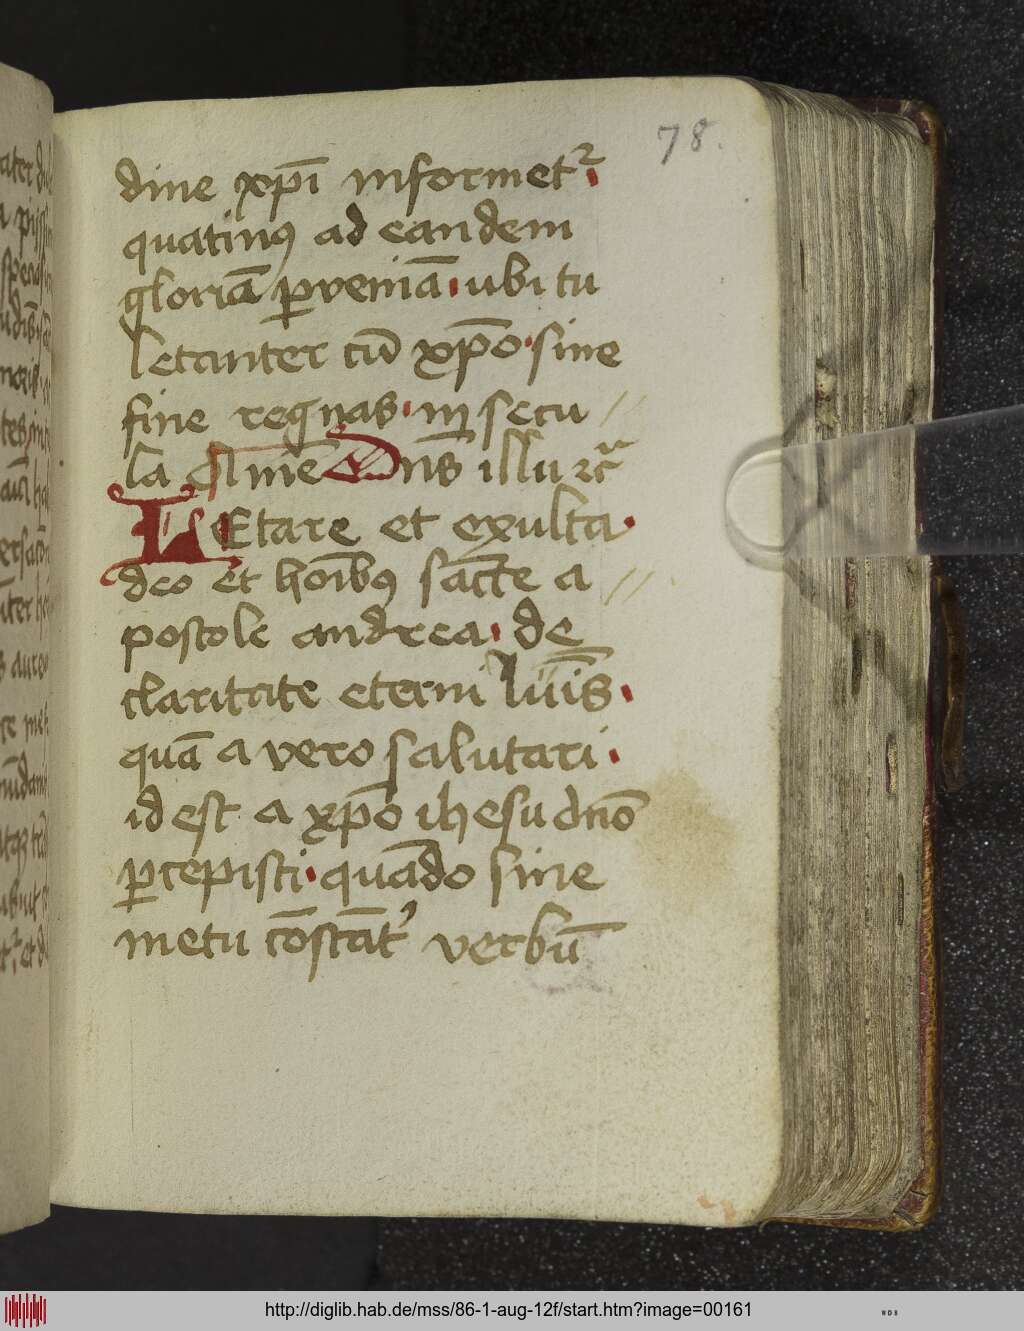 78.
dine xp̄i informet᷑
quatinꝰ ad eandem
gloriā ꝑveniā ubi tu
letanter cū xp̄o sine
fine regnas in secu //
la Amē Dn̄s illu ⁊cᷓ
LEtare et exulta
deo et hoībꝰ sāc̄te a //
postole andrea de
claritate eterni lūīs
quā a vero salutari
id est a xp̄o ihesu dn̄o
ꝑcepisti quādo sine
metu cōstāt᷑ verbū
http://diglib.hab.de/mss/86-1-aug-12f/start.htm?image=00161
WDB